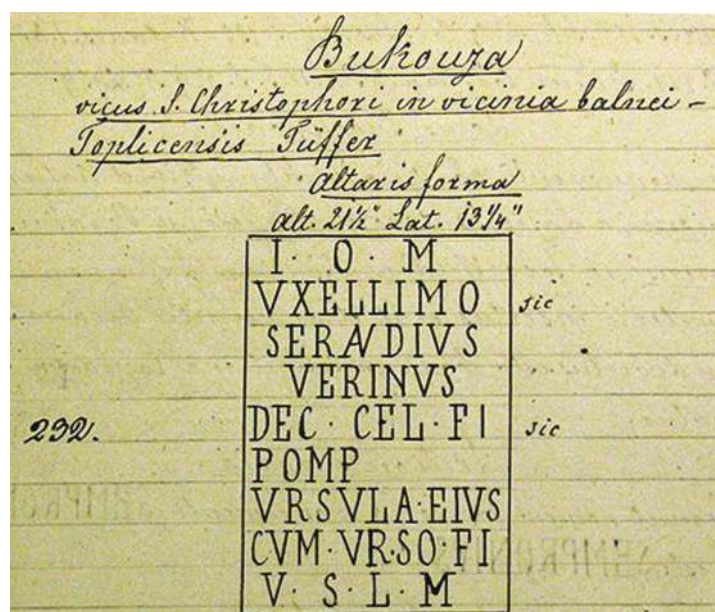 Bukouza
vicus S. Christophori in vicinia balnei -
Toplicensis Tüffer
Altaris forma
alt. 21½" Lat. 13¼"
I · O · M
VXELLIMO sic
SERAVDIVS
VERINVS
232. DEC · CEL · FI sic
POMP
VRSVLA · EIVS
CVM · VR · SO · FI
V · S · L · M